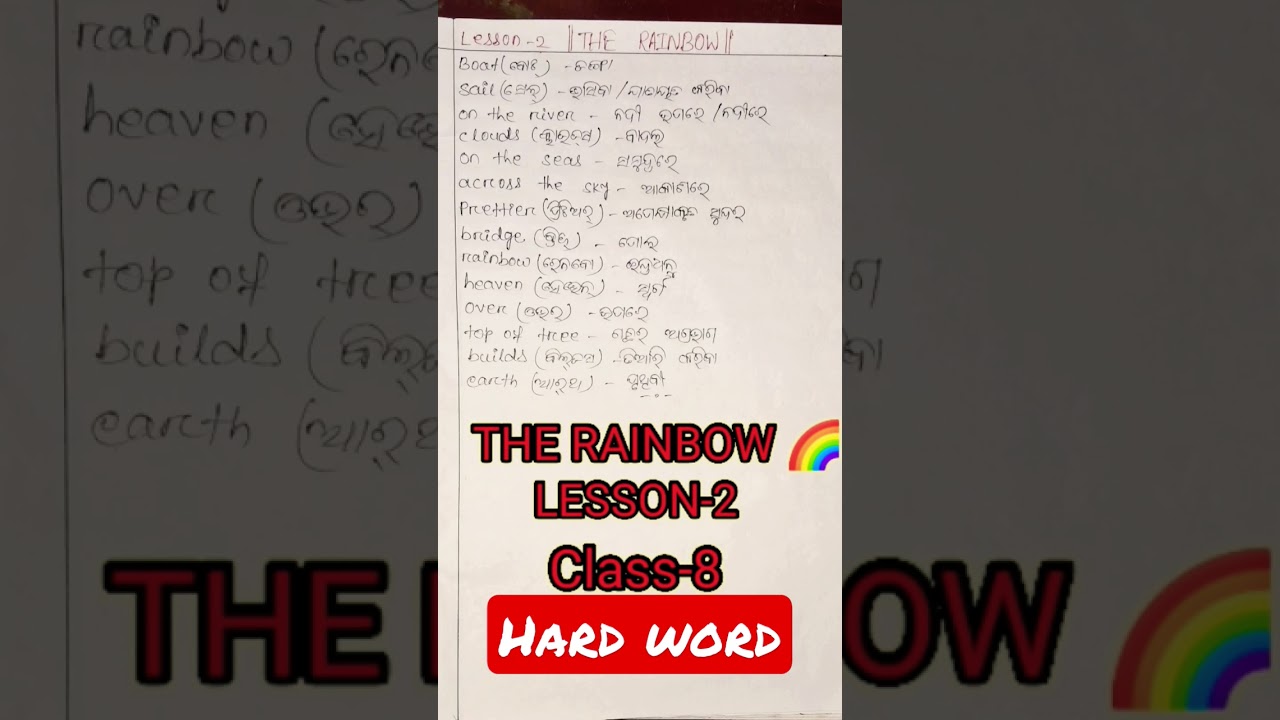 Lesson-2 || THE RAINBOW ||
Boat (ବୋଟ୍) - ଡଙ୍ଗା
sail (ସେଲ୍) - ଭାସିବା / ଯାତ୍ରା କରିବା
on the river - ନଦୀ ଉପରେ / ନଦୀରେ
clouds (କ୍ଲାଉଡ୍ସ) - ବାଦଲ
on the seas - ସମୁଦ୍ରରେ
across the sky - ଆକାଶରେ
Prettier (ପ୍ରିଟିଅର୍) - ଅପେକ୍ଷାକୃତ ସୁନ୍ଦର
bridge (ବ୍ରିଜ୍) - ପୋଲ
rainbow (ରେନବୋ) - ଇନ୍ଦ୍ରଧନୁ
heaven (ହେଭେନ୍) - ସ୍ୱର୍ଗ
over (ଓଭର) - ଉପରେ
top of tree - ଗଛର ଅଗ୍ରଭାଗ
builds (ବିଲ୍ଡସ) - ତିଆରି କରିବା
earth (ଆର୍ଥ) - ପୃଥିବୀ
THE RAINBOW 🌈
LESSON-2
Class-8
HARD WORD